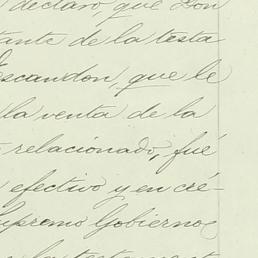 declaro, que Don
tante de la testa
Escandon, que le
la venta de la
relacionado, fué
efectivo y en cré-
Supremo Gobierno
la testa